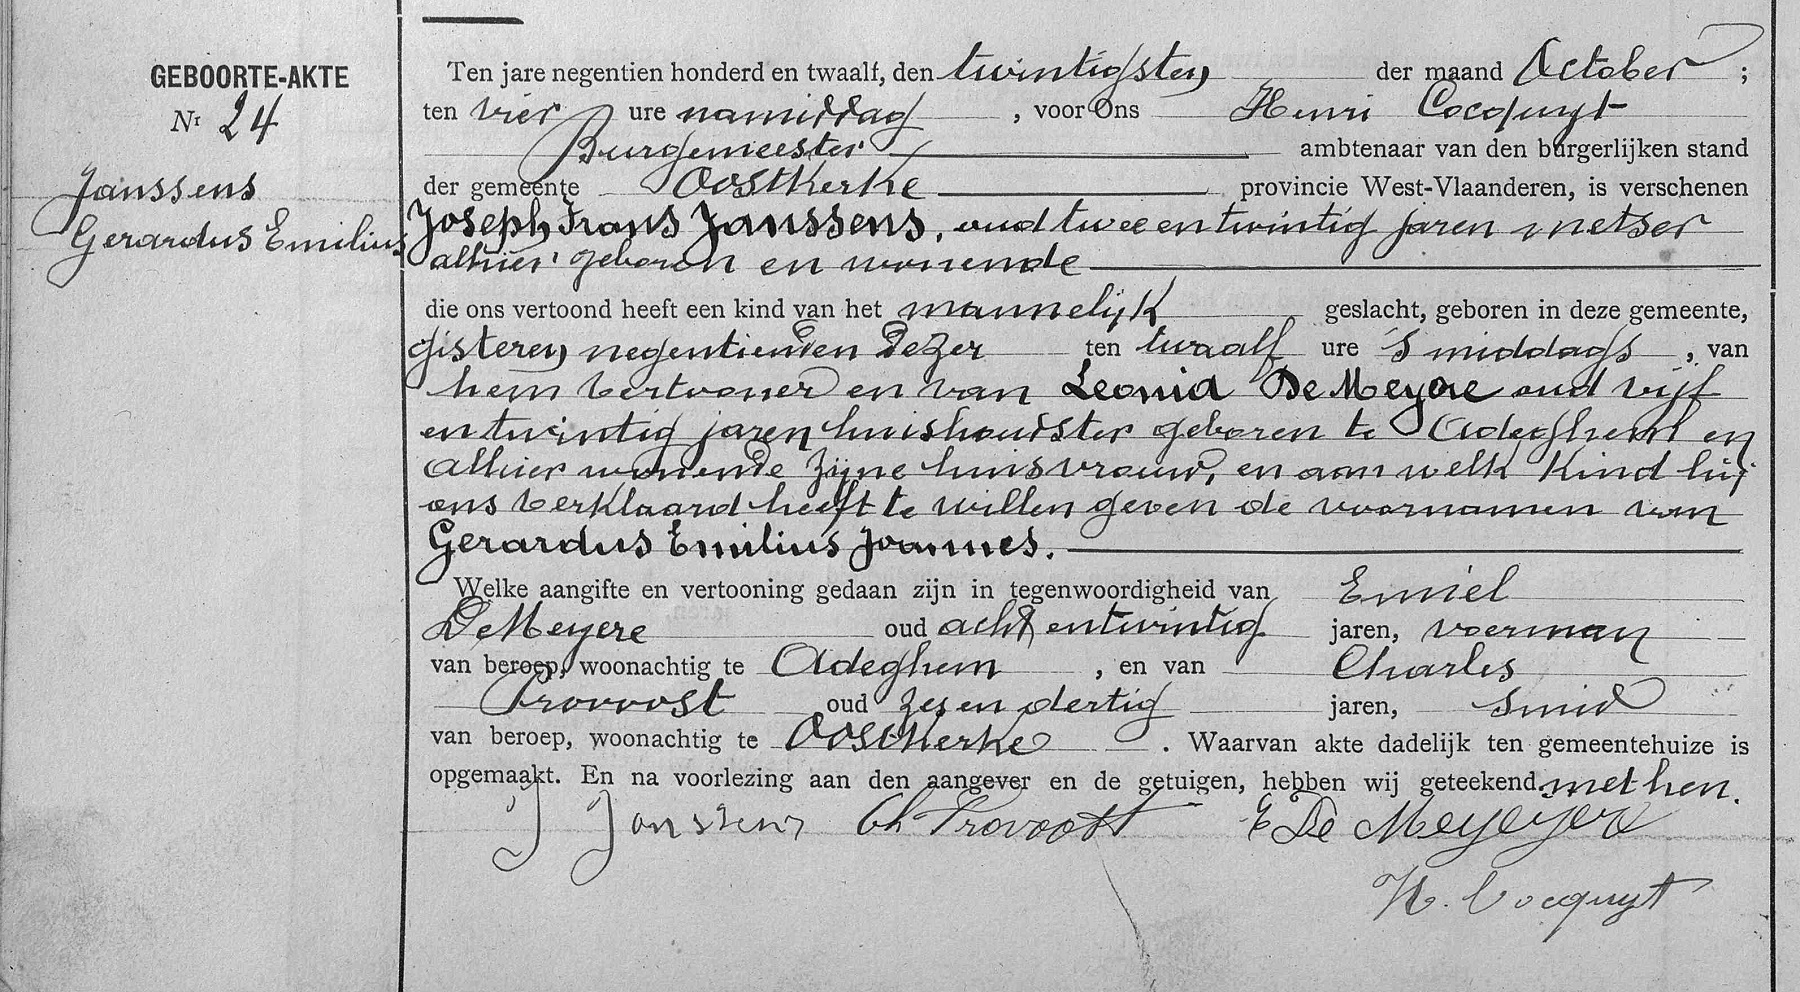 GEBOORTE-AKTE
Nr 24
Janssens
Gerardus Emilius
Ten jare negentien honderd en twaalf, den twintigsten der maand October ;
ten vier ure namiddag , voor Ons Henri Cocquyt
Burgemeester ambtenaar van den burgerlijken stand
der gemeente Oostkerke provincie West-Vlaanderen, is verschenen
Joseph Frans Janssens, oud twee en twintig jaren metser
alhier geboren en wonende
die ons vertoond heeft een kind van het mannelijk geslacht, geboren in deze gemeente,
gisteren negentienden dezer ten twaalf ure 's middags , van
hem vertooner en van Leonia De Meyere oud vijf
en twintig jaren huishoudster geboren te Adeghem en
alhier wonende zijne huisvrouw, en aan welk kind hij
ons verklaard heeft te willen geven de voornamen van
Gerardus Emilius Joannes.
Welke aangifte en vertooning gedaan zijn in tegenwoordigheid van Emiel
De Meyere oud acht en twintig jaren, voerman
van beroep, woonachtig te Adeghem , en van Charles
Provoost oud zes en dertig jaren, smid
van beroep, woonachtig te Oostkerke . Waarvan akte dadelijk ten gemeentehuize is
opgemaakt. En na voorlezing aan den aangever en de getuigen, hebben wij geteekend met hen.
J Janssens Ch Provoost E De Meyeyere
H. Cocquyt